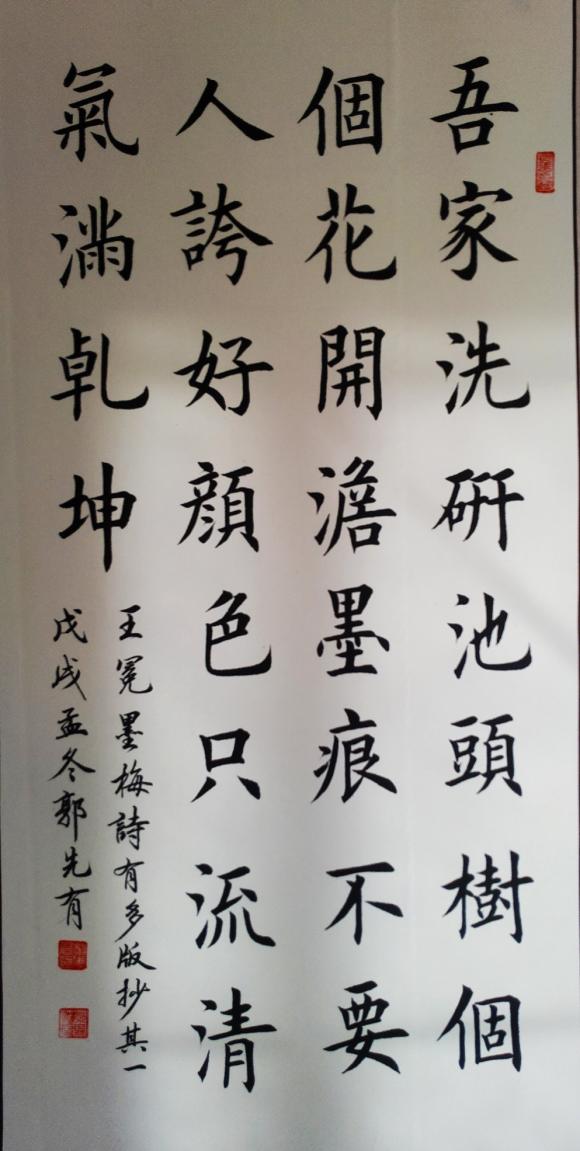 吾家洗硏池頭樹個
個花開澹墨痕不要
人誇好顔色只流清
氣滿乹坤
王冕墨梅詩有多版抄其一
戊戌孟冬郭先有